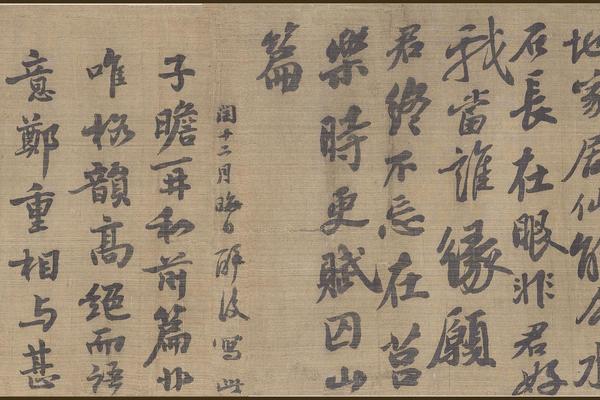 地家居仙能令水
石長在眼非君好
我當誰緣願
君終不忘在莒
樂時更賦囚山
篇
閏十二月晦日醉後寫此
子瞻再和前篇非
唯格韻高絕而語
意鄭重相与甚